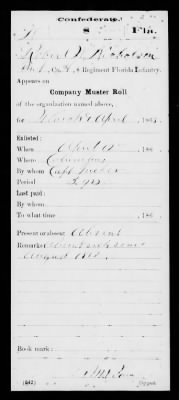 Confederate.
8 Fla.
Robert Nickolson
Pvt, Co. H, 8 Regiment Florida Infantry.
Appears on
Company Muster Roll
of the organization named above,
for March & April, 186
Enlisted:
When 186
Where Columbus
By whom Capt
Period 3 yrs
Last paid:
By whom
To what time , 186
Present or absent Absent
Remarks: absent sick since
August
Book mark:
(642) Copyist.